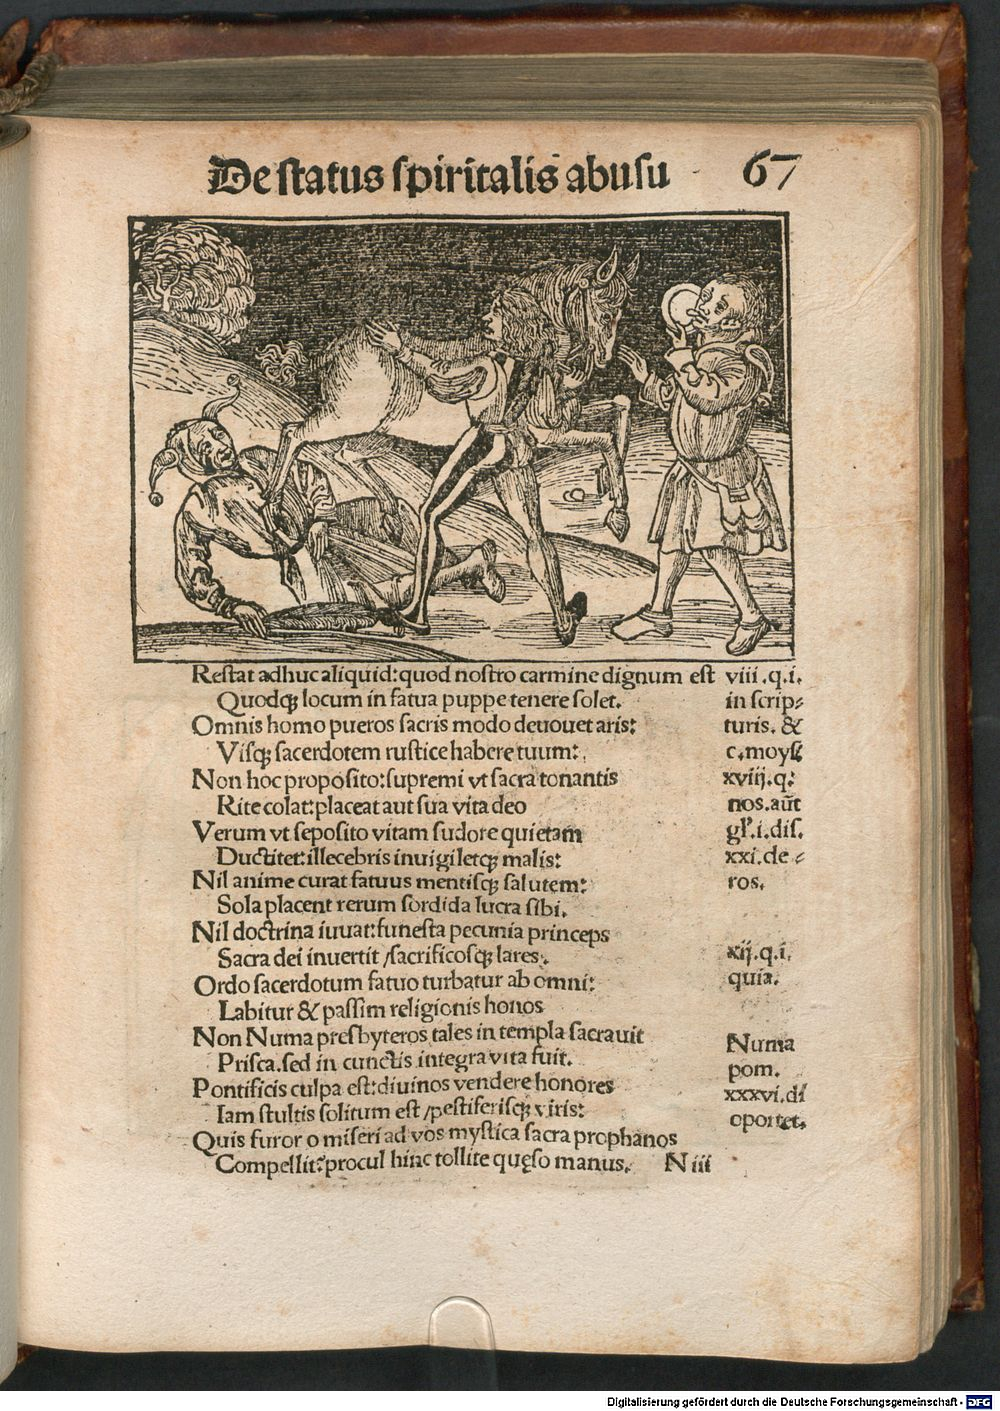 De status spiritalis abusu
67
Restat adhuc aliquid: quod nostro carmine dignum est
Quodqꝫ locum in fatua puppe tenere solet.
Omnis homo pueros sacris modo deuouet aris:
Visqꝫ sacerdotem rustice habere tuum:
Non hoc proposito: supremi vt sacra tonantis
Rite colat: placeat aut sua vita deo
Verum vt seposito vitam sudore quietam
Ductitet: illecebris inuigiletqꝫ malis:
Nil anime curat fatuus mentisqꝫ salutem:
Sola placent rerum sordida lucra sibi.
Nil doctrina iuuat: funesta pecunia princeps
Sacra dei inuertit / sacrificosqꝫ lares.
Ordo sacerdotum fatuo turbatur ab omni:
Labitur & passim religionis honos
Non Numa presbyteros tales in templa sacrauit
Prisca. sed in cunctis integra vita fuit.
Pontificis culpa est: diuinos vendere honores
Iam stultis solitum est / pestiferisqꝫ viris:
Quis furor o miseri ad vos mystica sacra prophanos
Compellit? procul hinc tollite quęso manus.
N iii
viii .q.i.
in scrip⸗
turis. &
c. moyses
xviij.q:
nos. aūt
gl'.i.dis.
xxi.de⸗
ros.
xij.q.i.
quia.
Numa
pom.
xxxvi.di
oportet.
Digitalisierung gefördert durch die Deutsche Forschungsgemeinschaft - DFG